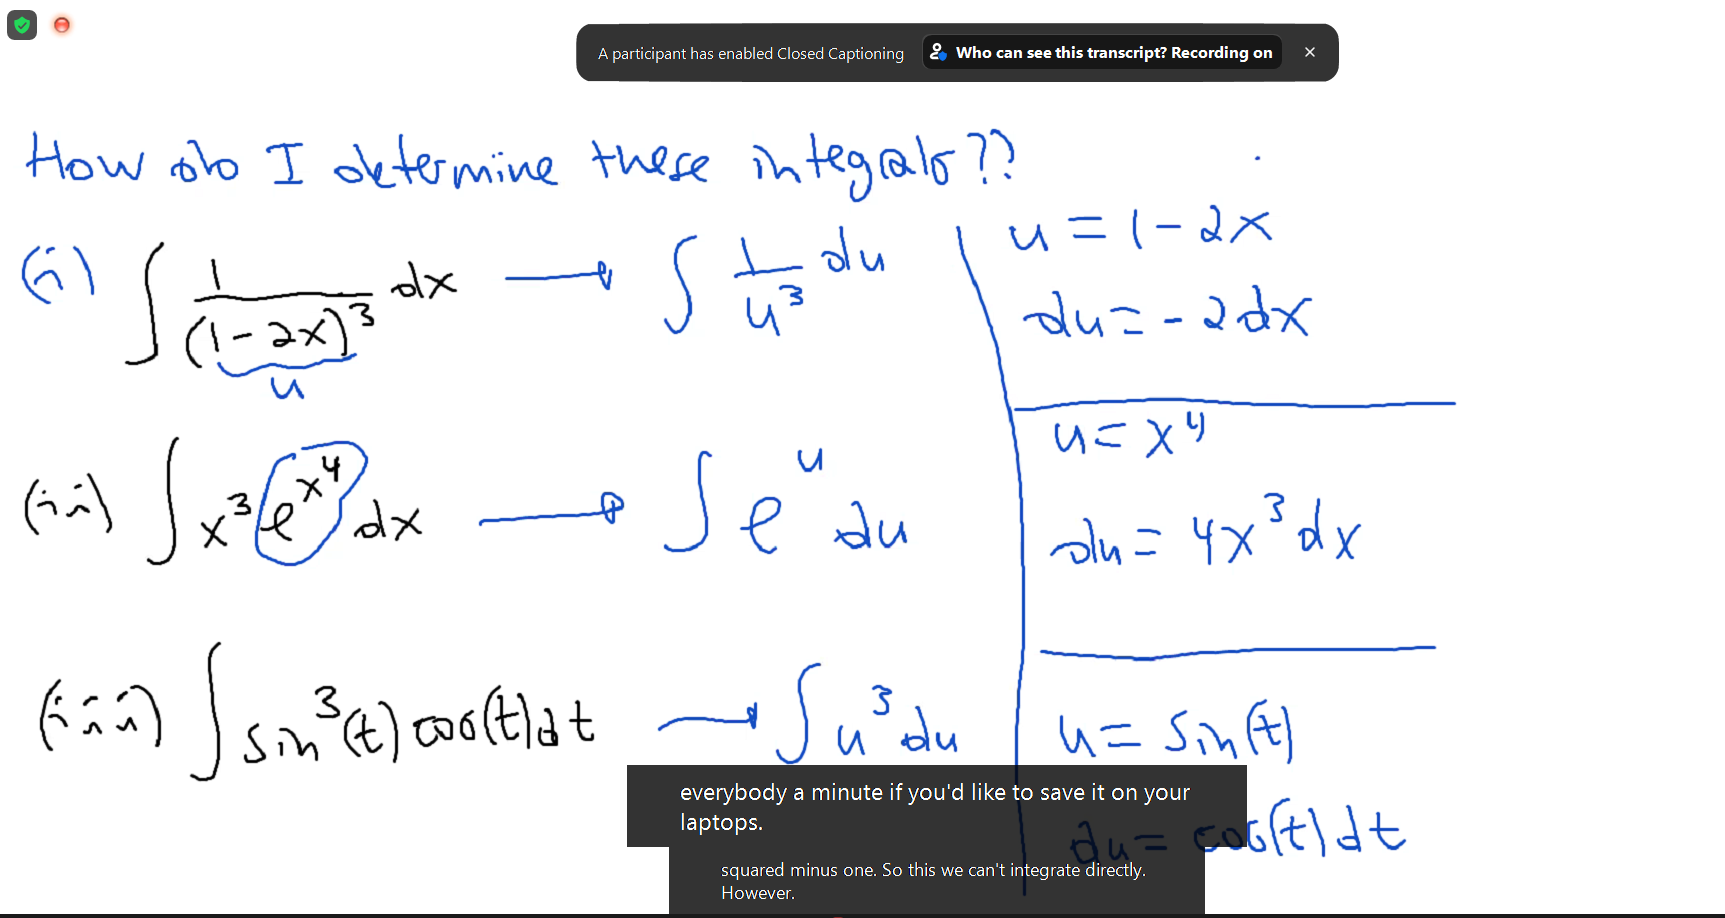 A participant has enabled Closed Captioning Who can see this transcript? Recording on
How do I determine these integrals??
(i) ∫ 1/(1-2x)³ dx → ∫ 1/u³ du
u
u = 1-2x
du = -2dx
(ii) ∫ x³ e^(x⁴) dx → ∫ e^u du
u = x⁴
du = 4x³ dx
(iii) ∫ sin³(t) cos(t) dt → ∫ u³ du
u = sin(t)
du = cos(t) dt
everybody a minute if you'd like to save it on your
laptops.
squared minus one. So this we can't integrate directly.
However.